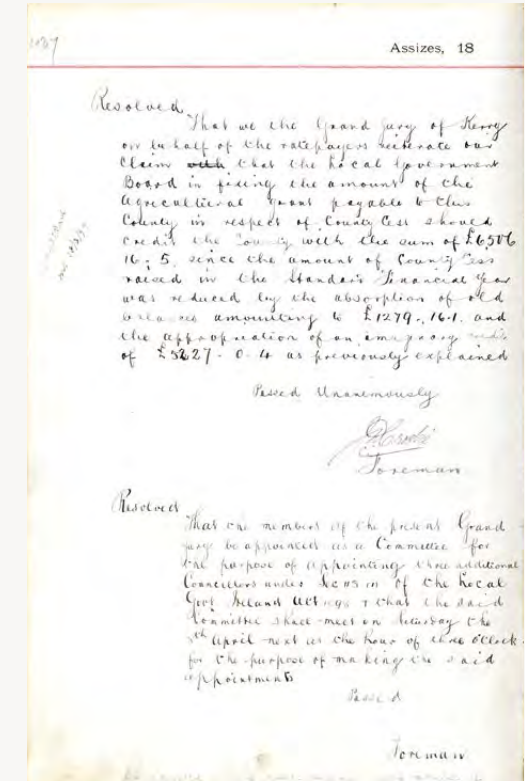 Assizes, 18
Resolved
That we the Grand Jury of Kerry
on behalf of the ratepayers reiterate our
Claim with that the Local Government
Board in fixing the amount of the
Agricultural Grant payable to this
County in respect of County Cess should
credit the County with the sum of £6506
16.5, since the amount of County Cess
raised in the Standard Financial Year
was reduced by the absorption of old
balances amounting to £1279.16.1 and
the appropriation of an imaginary credit
of £5227.0.4 as previously explained
Passed Unanimously
Foreman
Resolved
That the members of the present Grand
Jury be appointed as a Committee for
the purpose of appointing three additional
Councillors under of the Local
Govt Ireland Act & that the said
Committee shall meet on the
April next at the hour of three o'Clock
for the purpose of making the said
appointments
Passed
Foreman